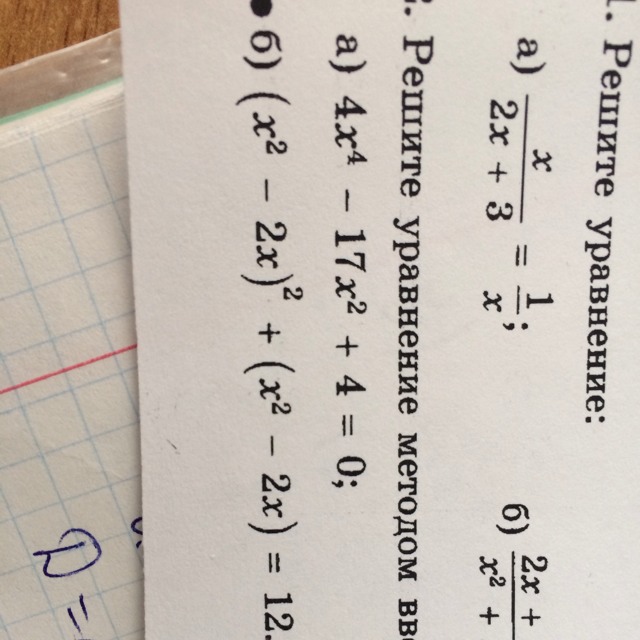 1. Решите уравнение:
а) x/(2x + 3) = 1/x; б) (2x +)/(x² +)
2. Решите уравнение методом
а) 4x⁴ − 17x² + 4 = 0;
•б) (x² − 2x)² + (x² − 2x) = 12.
D =